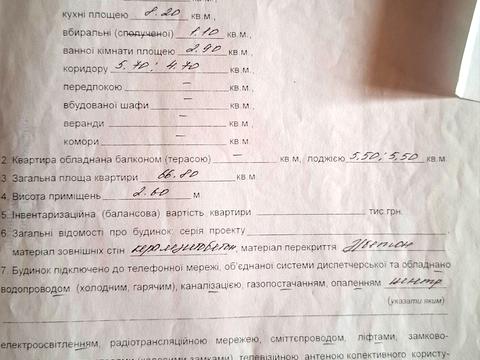 кухні площею 8.20 кв.м.,
вбиральні (сполученої) 1.10 кв.м.,
ванної кімнати площею 2.90 кв.м.,
коридору 5.70; 4.70 кв.м.,
передпокою — кв.м.,
вбудованої шафи — кв.м.,
веранди — кв.м.,
комори — кв.м.
2. Квартира обладнана балконом (терасою) — кв.м, лоджією 5,50; 5,50 кв.м.
3. Загальна площа квартири 66.80 кв.м
4. Висота приміщень 2.60 м
5. Інвентаризаційна (балансова) вартість квартири тис.грн.
6. Загальні відомості про будинок: серія проекту
матеріал зовнішніх стін матеріал перекриття
7. Будинок підключено до телефонної мережі, об'єднаної системи диспетчерської та обладнано
водопроводом (холодним, гарячим), каналізацією, газопостачанням, опаленням центр
(указати яким)
електроосвітленням, радіотрансляційною мережею, сміттєпроводом, ліфтами, замково-
телевізійною антеною колективного користу-